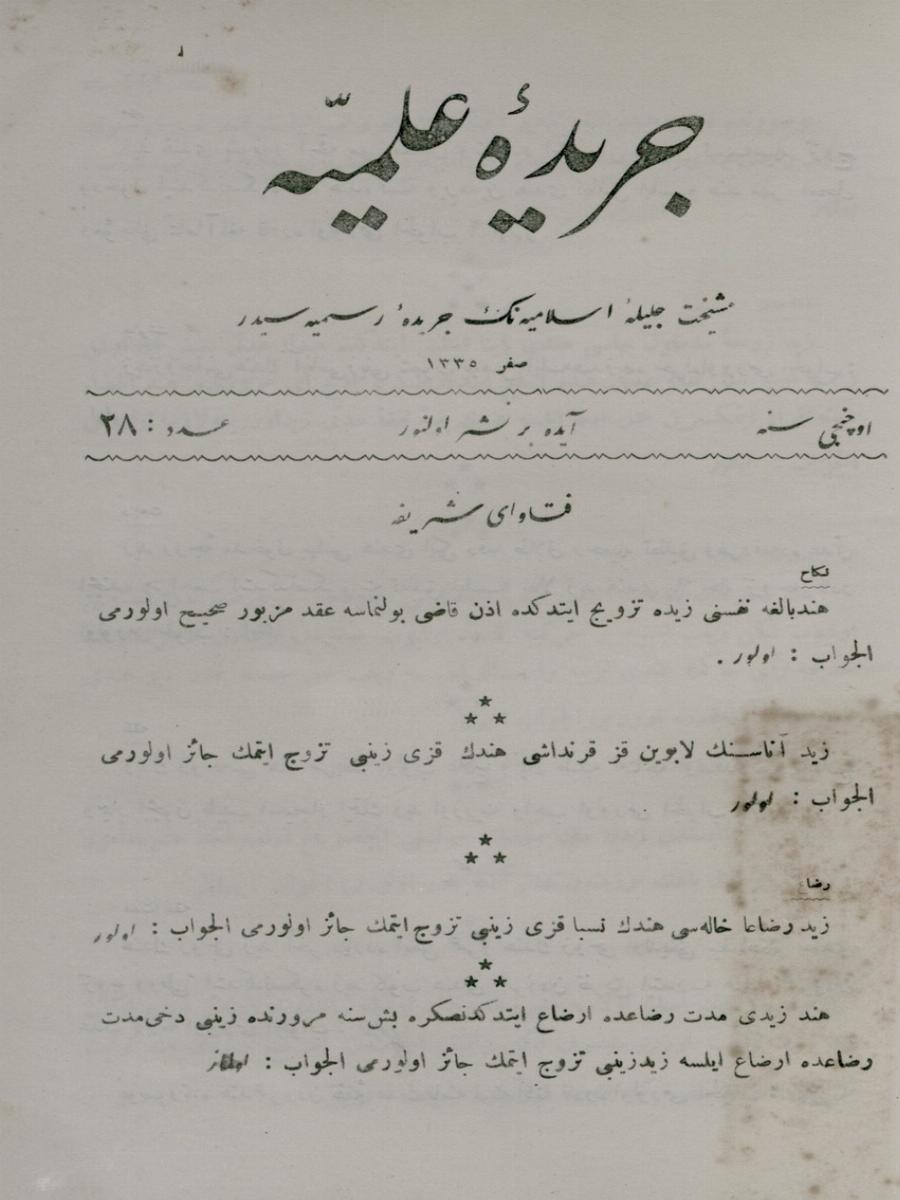 جريدۀ علميّه
مشيخت جليلۀ اسلاميه‌نك جريدۀ رسميه سيدر
صفر ١٣٣٥
اوچنجى سنه آيده بر نشر اولنور عدد : ٢٨
فتاواى شريفه
نكاح
هند بالغه نفسنى زيده تزويج ايتدكده اذن قاضى بولنماسه عقد مزبور صحيح اولورمى
الجواب : اولور .
زيد آناسنك لابوين قز قرنداشى هندك قزى زينبى تزوج ايتمك جائز اولورمى
الجواب : اولور
رضاع
زيد رضاعا خاله‌سى هندك نسبا قزى زينبى تزوج ايتمك جائز اولورمى الجواب : اولور
هند زيدى مدت رضاعده ارضاع ايتدكدنصكره بش سنه مرورنده زينبى دخى مدت
رضاعده ارضاع ايلسه زيد زينبى تزوج ايتمك جائز اولورمى الجواب : اولماز